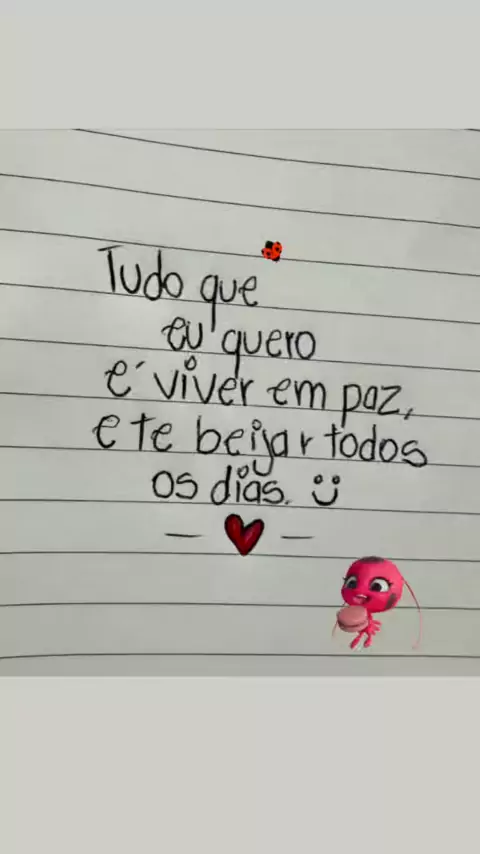 Tudo que
eu quero
é viver em paz,
e te beijar todos
os dias. :)